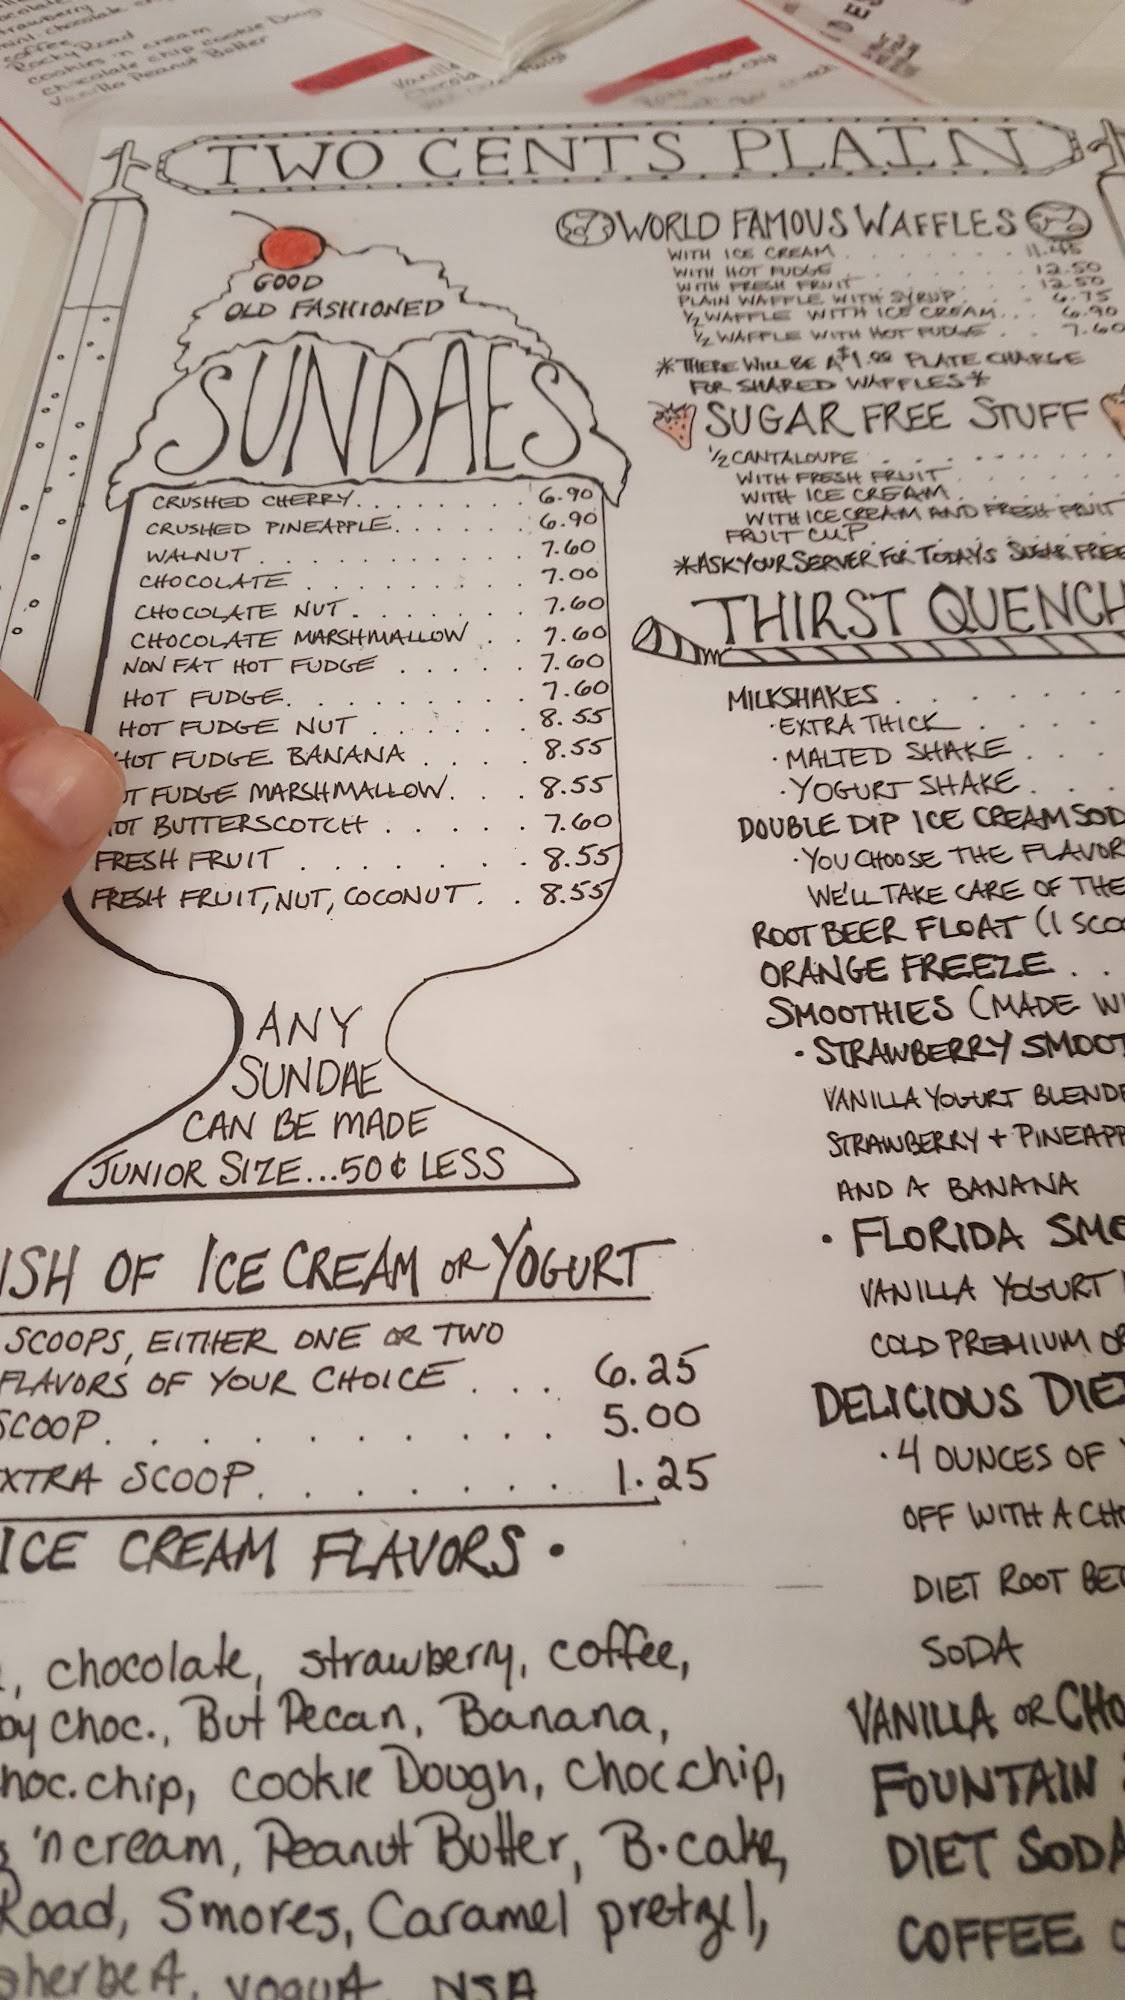 strawberry
coffee
Rocky Road
cookies 'n cream
chocolate chip cookie Doug
Vanilla Peanut Butter
TWO CENTS PLAIN
GOOD
OLD FASHIONED
SUNDAES
CRUSHED CHERRY. . . . . . . 6.90
CRUSHED PINEAPPLE. . . . . 6.90
WALNUT . . . . . . . . . . 7.60
CHOCOLATE . . . . . . . . 7.00
CHOCOLATE NUT. . . . . . . 7.60
CHOCOLATE MARSHMALLOW . . 7.60
NON FAT HOT FUDGE . . . . . 7.60
HOT FUDGE. . . . . . . . . 7.60
HOT FUDGE NUT . . . . . . 8.55
HOT FUDGE BANANA . . . . 8.55
OT FUDGE MARSHMALLOW. . . 8.55
HOT BUTTERSCOTCH . . . . . 7.60
FRESH FRUIT . . . . . . . . 8.55
FRESH FRUIT, NUT, COCONUT . . 8.55
ANY
SUNDAE
CAN BE MADE
JUNIOR SIZE...50¢ LESS
ISH OF ICE CREAM OR YOGURT
SCOOPS, EITHER ONE OR TWO
FLAVORS OF YOUR CHOICE . . . 6.25
SCOOP. . . . . . . . . . . 5.00
XTRA SCOOP. . . . . . . . 1.25
ICE CREAM FLAVORS •
chocolate, strawberry, coffee,
oy choc., But Pecan, Banana,
hoc.chip, Cookie Dough, choc.chip,
'n cream, Peanut Butter, B.cake,
Road, Smores, Caramel pretzel,
sherbet, yogurt, NSA
WORLD FAMOUS WAFFLES
WITH ICE CREAM . . . . . . 11.45
WITH HOT FUDGE . . . . . . 12.50
WITH FRESH FRUIT . . . . . 12.50
PLAIN WAFFLE WITH SYRUP. . . 6.75
½ WAFFLE WITH ICE CREAM. . . 6.90
½ WAFFLE WITH HOT FUDGE . . 7.60
*THERE WILL BE A $1.00 PLATE CHARGE
FOR SHARED WAFFLES*
SUGAR FREE STUFF
½ CANTALOUPE
WITH FRESH FRUIT
WITH ICE CREAM
WITH ICE CREAM AND FRESH FRUIT
FRUIT CUP
*ASK YOUR SERVER FOR TODAY'S SUGAR FREE
THIRST QUENCH
MILKSHAKES
•EXTRA THICK
•MALTED SHAKE
•YOGURT SHAKE
DOUBLE DIP ICE CREAM SOD
•YOU CHOOSE THE FLAVOR
WE'LL TAKE CARE OF THE
ROOT BEER FLOAT (1 SCO
ORANGE FREEZE
SMOOTHIES (MADE WI
• STRAWBERRY SMOOT
VANILLA YOGURT BLENDE
STRAWBERRY + PINEAPP
AND A BANANA
• FLORIDA SMO
VANILLA YOGURT
COLD PREMIUM OR
DELICIOUS DIE
•4 OUNCES OF
OFF WITH A CHO
DIET ROOT BEE
SODA
VANILLA OR CHO
FOUNTAIN
DIET SODA
COFFEE